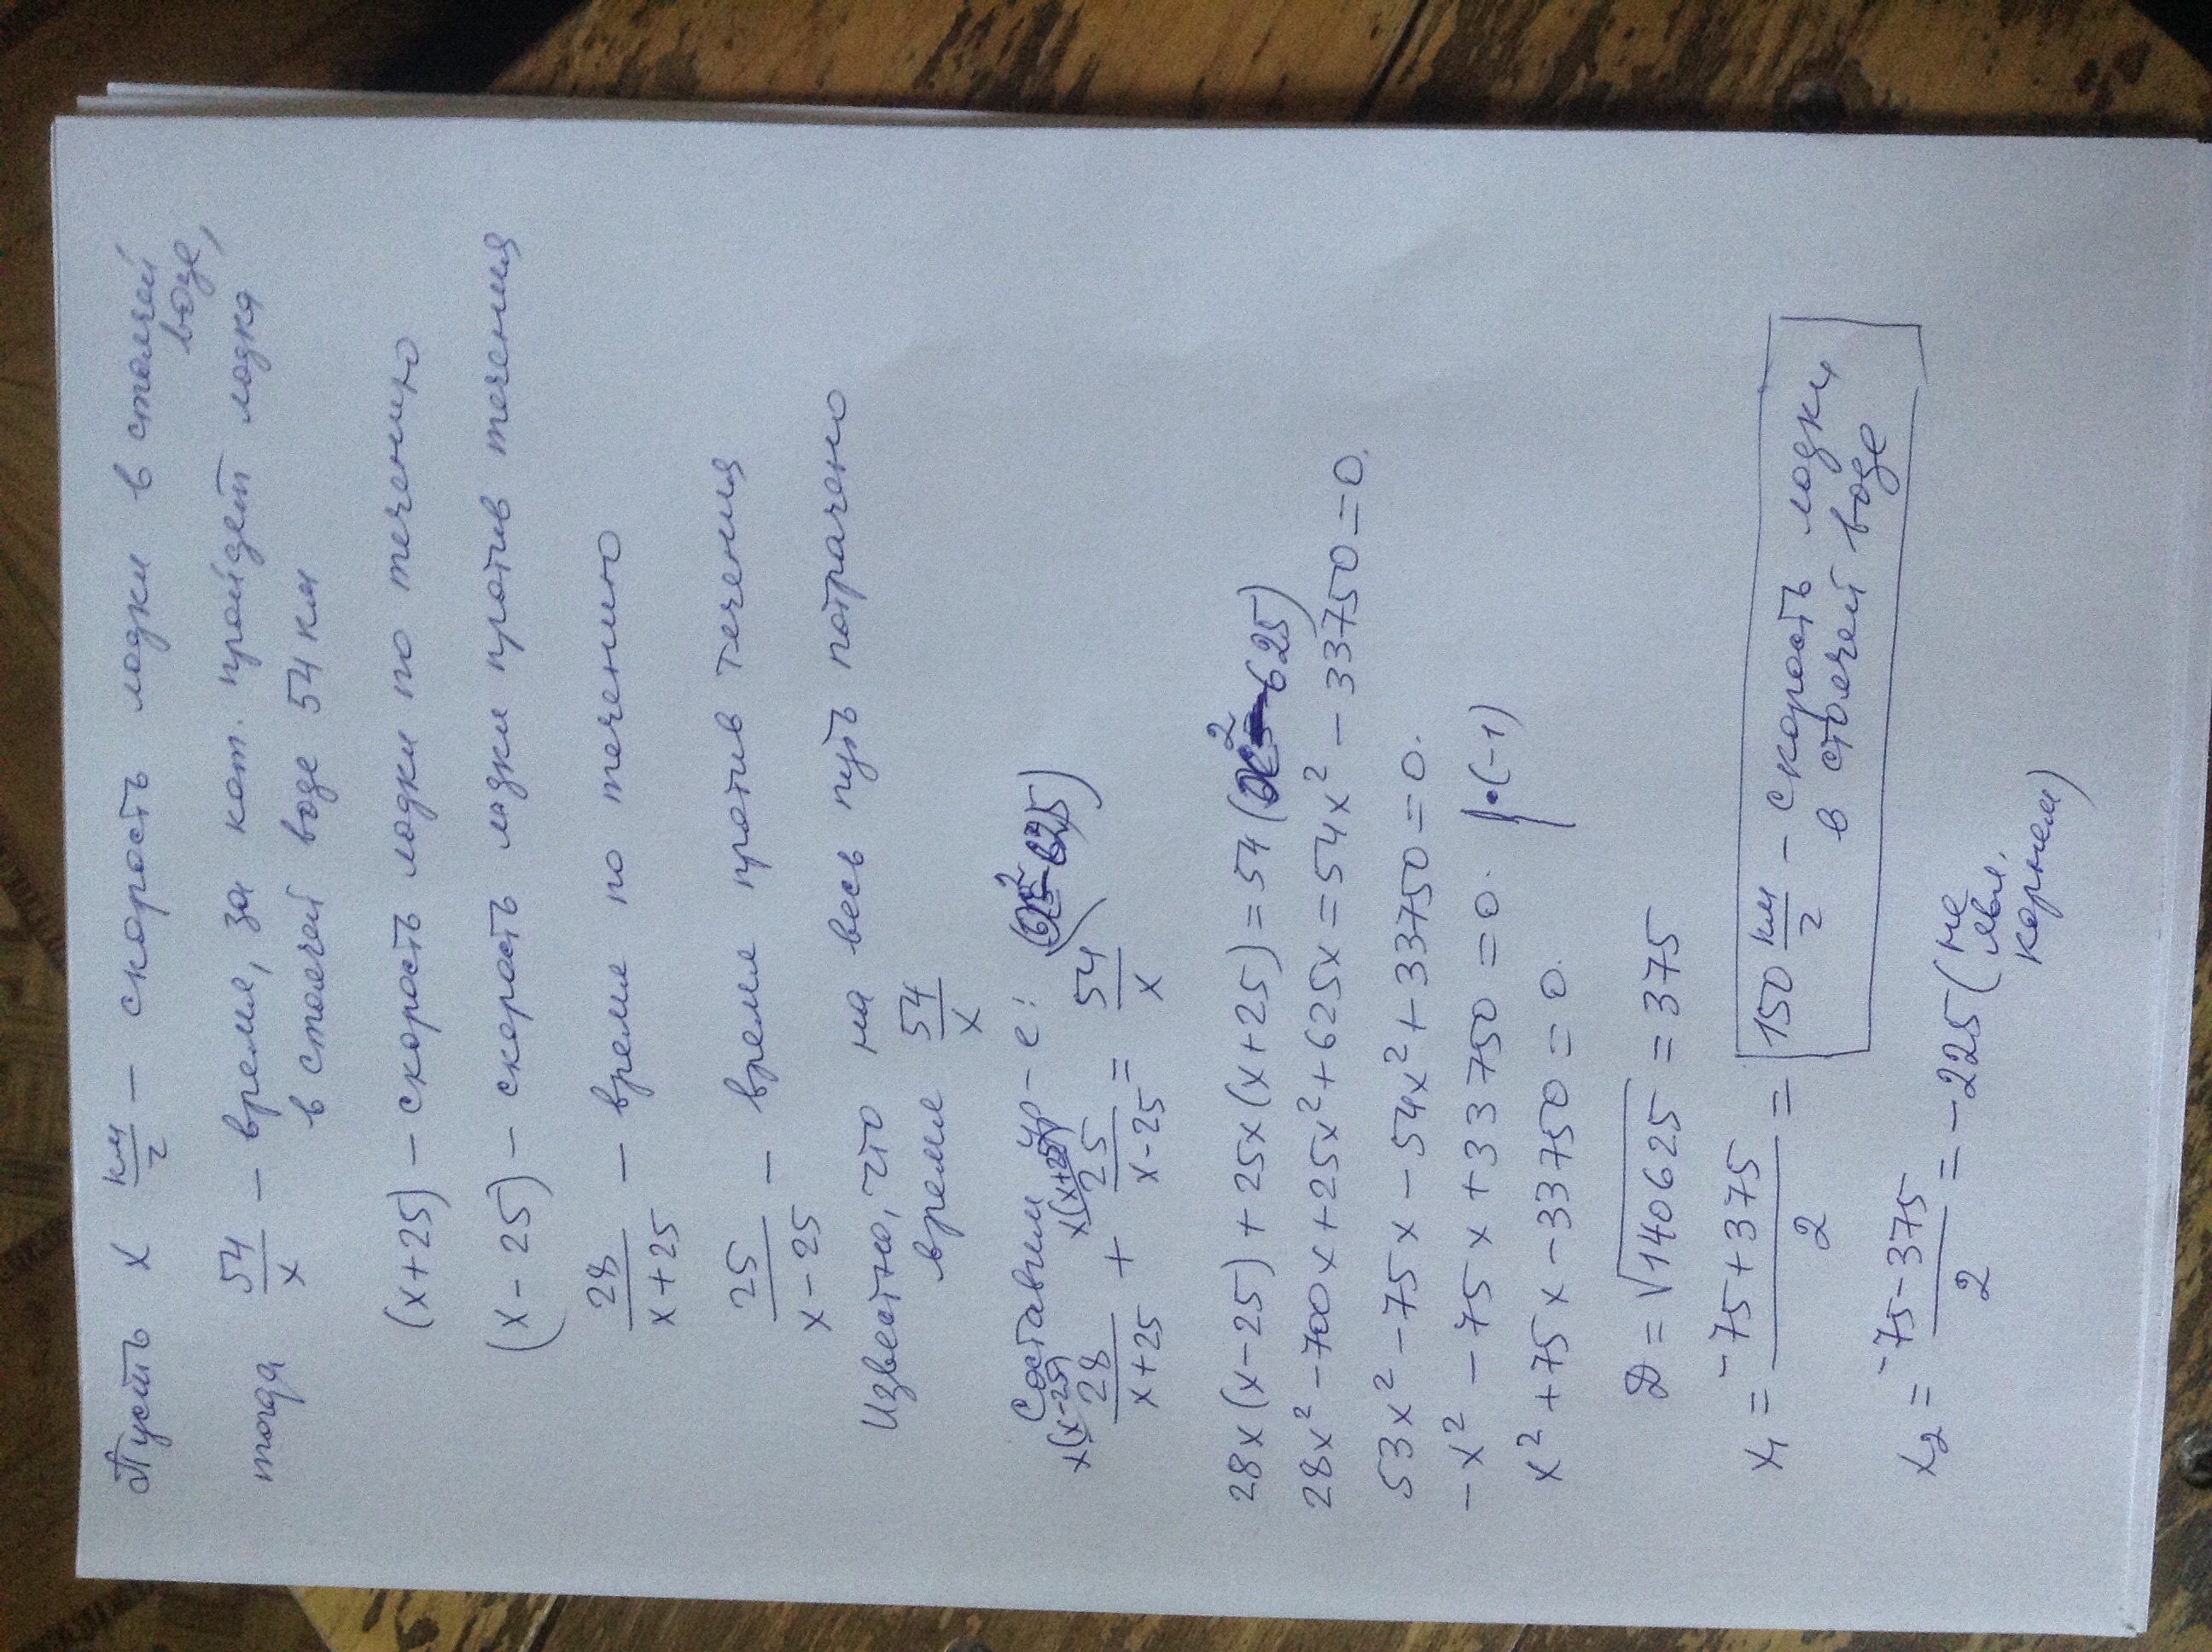 Пусть x км/г – скорость лодки в стоячей воде,
тогда 54/x – время, за кот. пройдет лодка
в стоячей воде 54 км
(x+25) – скорость лодки по течению
(x-25) – скорость лодки против течения
28/(x+25) – время по течению
25/(x-25) – время против течения
Известно, что на весь путь потрачено
время 54/x
Составим ур-е:
28/(x+25) + 25/(x-25) = 54/x
28x(x-25)+25x(x+25)=54(x²-625)
28x²-700x+25x²+625x=54x²-33750=0.
53x²-75x-54x²+33750=0.
-x²-75x+33750=0. |·(-1)
x²+75x-33750=0.
D=√140625=375
x₁=(-75+375)/2= 150 км/г – скорость лодки
в стоячей воде
x₂=(-75-375)/2=-225 (не явл. корнем)